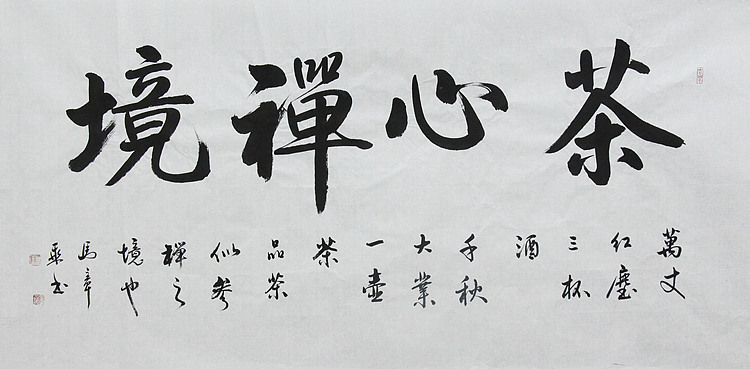 茶心禪境
萬丈
红塵
三杯
酒
千秋
大業
一壺
茶
品茶
似参
禅之
境也
馬章
乘书